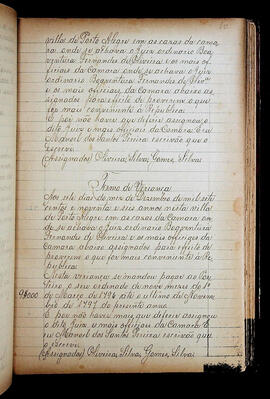 villa de Porto Alegre em as cazas da cama
ra onde se achava o Juiz ordinario Boa
ventura Fernandes de Oliveira e os mais of
ficiais da Camara onde se achava o Juiz
ordinario Boaventura Fernandes de Oliv.ra
e os mais officiais da Camara abaixo as
signados para effeito de proverem o que
mais conveniente a Republica
E por não haver que deferir assignou o
dito Juiz e mais officiais da Camara. E eu
Manoel dos Santos Pereira escrivão que o
escrevi
(Assignados) Oliveira, Silva, Gomes, Silva
Termo de Vereança
Aos sete dias do mez de Dezembro de mil sete
centos e noventa e seis annos nesta villa
de Porto Alegre em as cazas da Camara on
de se achava o Juiz ordinario Boaventura
Fernandes de Oliveira e os mais officiaes da
Camara abaixo assignados para effeito de
proverem o que for mais conveniente á Re
publica
Nesta vereança se mandou pagar ao
o seu ordenado de nove mezes do 1º
9$000 de Março de 1796 até o ultimo de Novem
bro de 1797 do presente anno
E por não haver mais que deferir assignou
o dito Juiz e mais officiaes da Camara. E
eu Manoel dos Santos Pereira escrivão que
o escrevi
(Assignados) Oliveira, Silva, Gomes, Silva